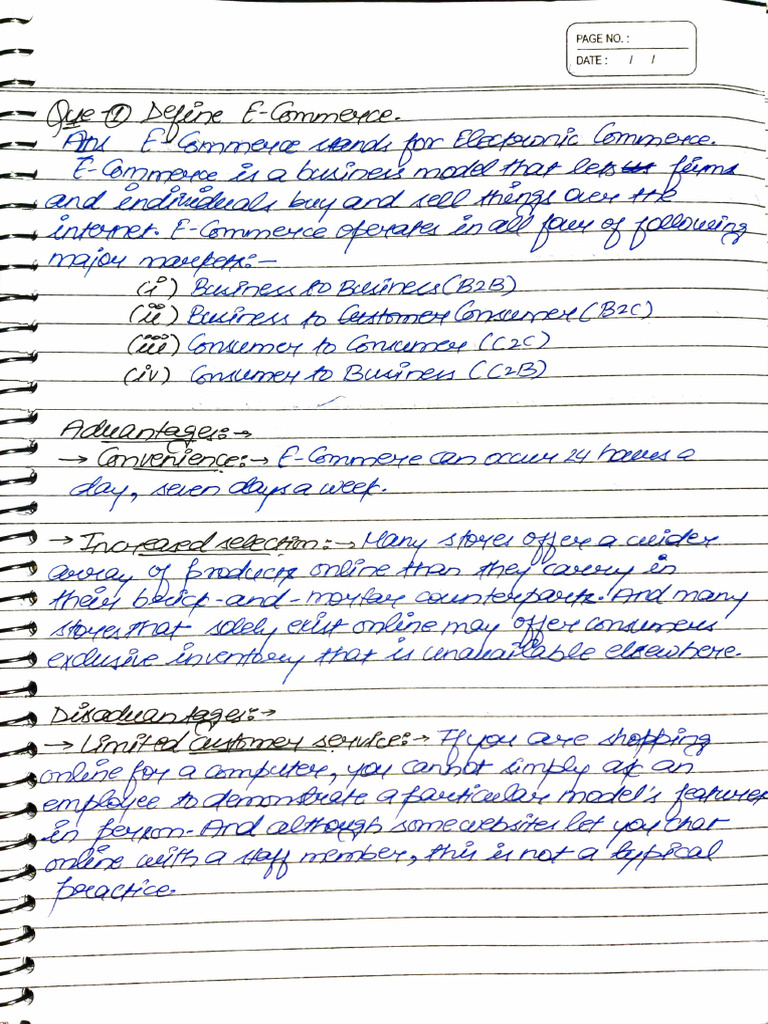 PAGE NO. :
DATE : / /
Que-① Define E-Commerce.
Ans E-Commerce stands for Electronic Commerce.
E-Commerce is a business model that lets firms
and individuals buy and sell things over the
internet. E-Commerce operates in all four of following
major markets:-
(i) Business to Business (B2B)
(ii) Business to Customer Consumer (B2C)
(iii) Consumer to Consumer (C2C)
(iv) Consumer to Business (C2B)
Advantages:→
→ Convenience:→ E-Commere can occur 24 hours a
day, seven days a week.
→ Increased selection:→ Many stores offer a wider
array of products online than they carry in
their brick-and-mortar counterparts. And many
stores that solely exist online may offer consumers
exclusive inventory that is unavailable elsewhere.
Disadvantages:→
→ Limited customer service:→ If you are shopping
online for a computer, you cannot simply ask an
employee to demonstrate a particular model's features
in person. And although some websites let you chat
online with a staff member, this is not a typical
practice.